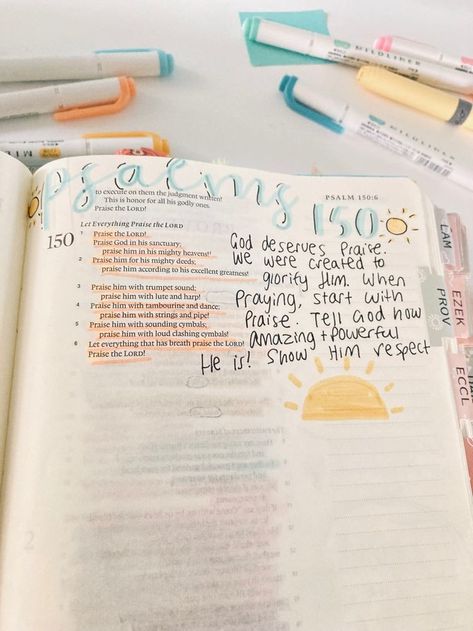 psalms 150
PSALM 150:6
to execute on them the judgment written!
This is honor for all his godly ones.
Praise the LORD!
Let Everything Praise the LORD
150 Praise the LORD!
Praise God in his sanctuary;
praise him in his mighty heavens!
2 Praise him for his mighty deeds;
praise him according to his excellent greatness!
3 Praise him with trumpet sound;
praise him with lute and harp!
4 Praise him with tambourine and dance;
praise him with strings and pipe!
5 Praise him with sounding cymbals;
praise him with loud clashing cymbals!
6 Let everything that has breath praise the LORD!
Praise the LORD!
God deserves Praise.
We were created to
glorify Him. When
Praying, start with
Praise. Tell God how
amazing + powerful
He is! Show Him respect
LAM
EZEK
PROV
ECCL
MILDLINER
MILDLINER